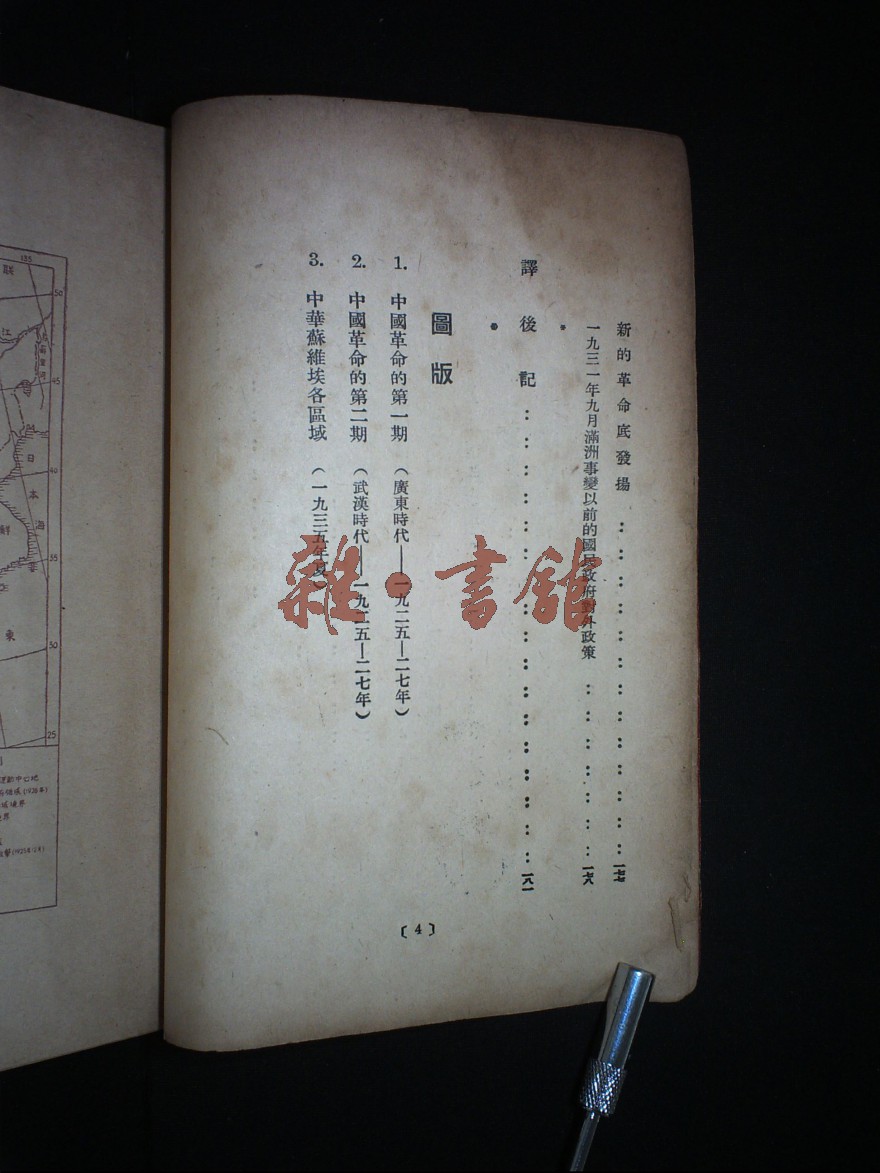 新的革命底發揚 一七七
一九三一年九月滿洲事變以前的國民政府對外政策 一七八
譯後記 一八一
圖版
1. 中國革命的第一期 (廣東時代——一九二五—二七年)
2. 中國革命的第二期 (武漢時代——一九二五—二七年)
3. 中華蘇維埃各區域 (一九三五年夏)
〔4〕
雜·書館
135
聯
50
江
45
日本海
40
鮮
35
東
50
25